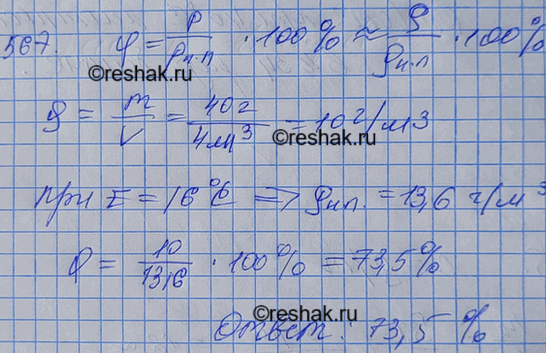 567. φ = p/pн.п · 100% ≈ ρ/ρн.п · 100%
©reshak.ru
ρ = m/V = 40г/4м³ = 10 г/м3
©reshak.ru
при t = 16°C => ρнп. = 13,6 г/м³
φ = 10/13,6 · 100% = 73,5%
©reshak.ru
Ответ: 73,5 %